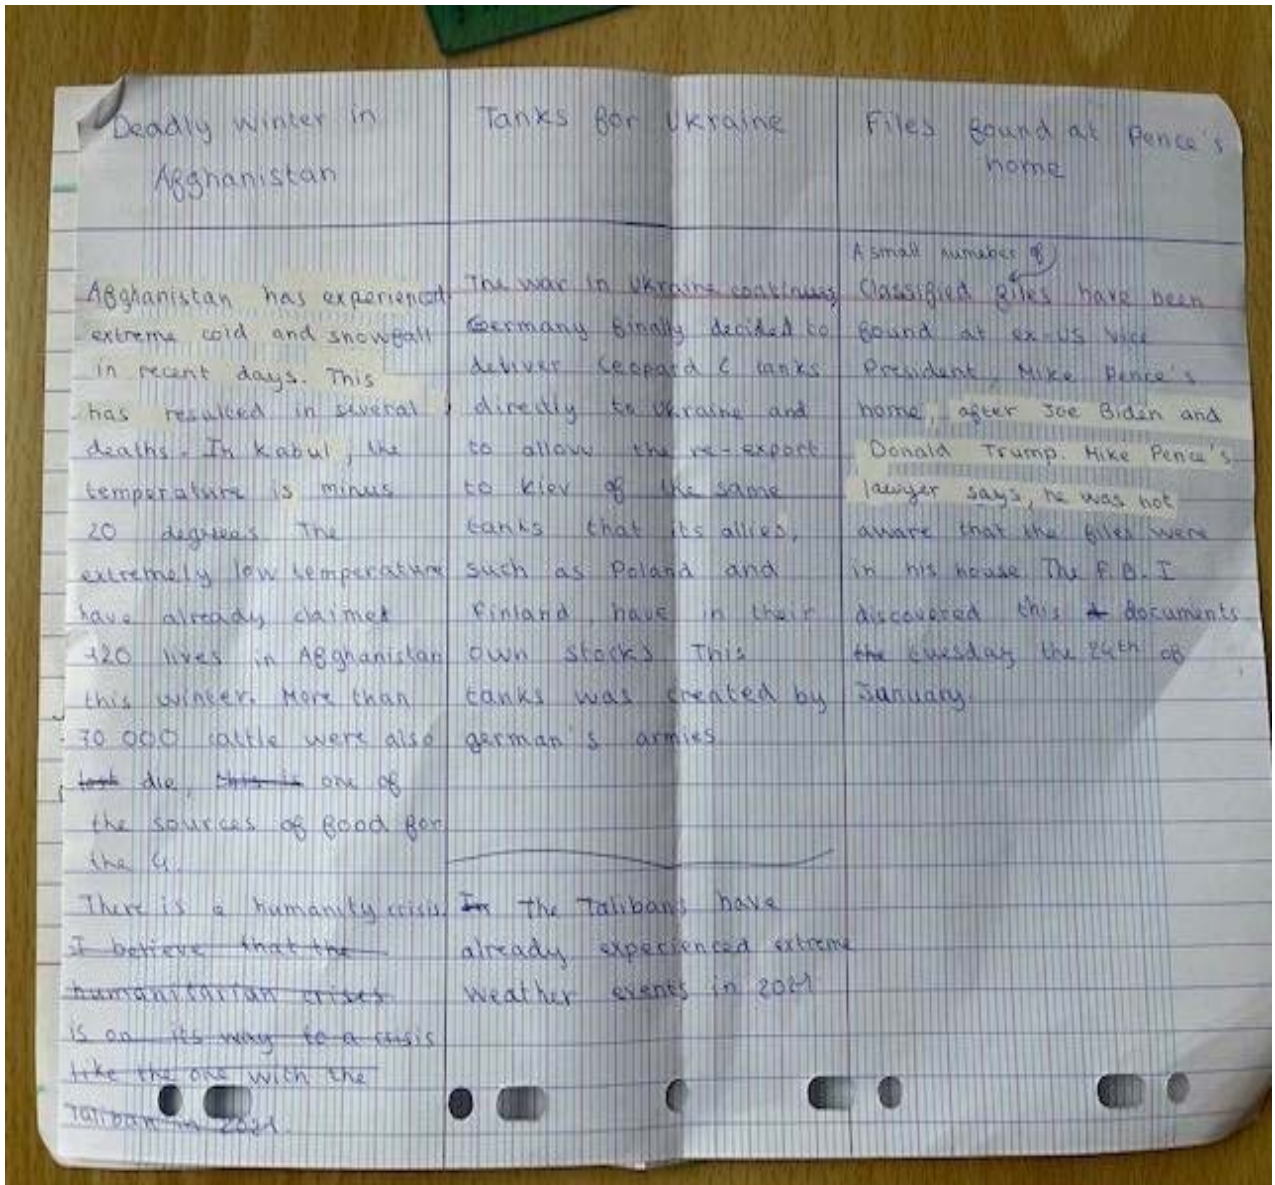 Deadly winter in
Afghanistan
Afghanistan has experienced
extreme cold and snowfall
in recent days. This
has resulted in several
deaths. In Kabul, the
temperature is minus
20 degrees. The
extremely low temperature
have already claimed
120 lives in Afghanistan
this winter. More than
70 000 cattle were also
lost die, this is one of
the sources of food for
the
There is a humanity crisis
I believe that the
humanitarian crises
is on its way to a crisis
like the one with the
Taliban in 2021.
Tanks for Ukraine
The war in Ukraine continues,
Germany finally decided to
deliver Leopard tanks
directly to Ukraine and
to allow the re-export
to Kiev of the same
tanks that its allies,
such as Poland and
Finland have in their
own stocks. This
tanks was created by
german's armies
In The Talibans have
already experienced extreme
weather events in 2021
Files found at Pence's
home
A small number of
Classified files have been
found at ex-US vice
President, Mike Pence's
home, after Joe Biden and
Donald Trump. Mike Pence's
lawyer says, he was not
aware that the files were
in his house. The F.B.I
discovered this documents
the tuesday the 24th of
January.